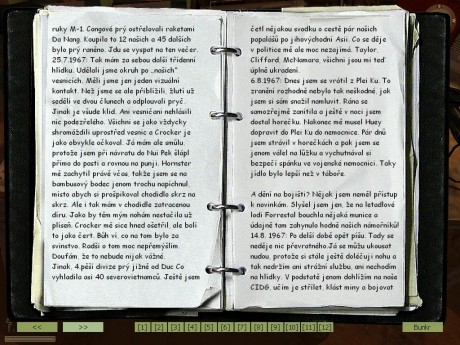 ruky M-1. Congové prý ostřelovali raketami
Da Nang. Koupilo to 12 našich a 45 dalších
bylo prý raněno. Jdu se vyspat na ten večer.
25.7.1967: Tak mám za sebou další třídenní
hlídku. Udělali jsme okruh po „našich"
vesnicích. Měli jsme jen jeden vizuální
kontakt. Než jsme se ale přiblížili, žluťi už
seděli ve dvou člunech a odplouvali pryč.
Jinak je všude klid. Ani vesničani nehlásili
nic podezřelého. Všichni se jako vždycky
shromáždili uprostřed vesnic a Crocker je
jako obvykle očkoval. Já mám ale smůlu,
protože jsem při návratu do Nui Pek šlápl
přímo do pasti a rovnou na punji. Hornster
mě zachytil právě včas, takže jsem se na
bambusový bodec jenom trochu napíchnul,
místo abych si prošpikoval chodidlo skrz na
skrz. Ale i tak mám v chodidle zatracenou
díru. Jako by těm mým nohám nestačila už
plíseň. Crocker mě sice hned ošetřil, ale bolí
to jako čert. Bůh ví, co na tom bylo za
svinstvo. Radši o tom moc nepřemýšlím.
Doufám, že to nebude nijak vážné.
Jinak, 4.pěší divize prý jižně od Duc Co
vyhladila asi 40 severovietnamců. Ještě jsem
četl nějakou svodku o cestě pár našich
papalášů po jihovýchodní Asii. Co se děje
v politice mě ale moc nezajímá. Taylor,
Clifford, McNamara, všichni jsou mi teď
úplně ukradení.
6.8.1967: Dnes jsem se vrátil z Plei Ku. To
zranění rozhodně nebylo tak neškodné, jak
jsem si sám snažil namluvit. Rána se
samozřejmě zanítila a ještě v noci jsem
dostal horečku. Nakonec mě musel Huey
dopravit do Plei Ku do nemocnice. Pár dnů
jsem strávil v horečkách a pak jsem se
jenom válel na lůžku a vychutnával si
bezpečí spánku ve vojenské nemocnici. Taky
jídlo bylo lepší než v táboře.
A dění na bojišti? Nějak jsem neměl přístup
k novinkám. Slyšel jsem jen, že na letadlové
lodi Forrestal bouchla nějaká munice a
údajně tam zahynulo hodně našich námořníků!
14.8. 1967: Po delší době opět píšu. Tady se
neděje nic převratného. Já se můžu ukousat
nudou, protože si stále ještě doléčuji nohu a
tak nedržím ani strážní službu, ani nechodím
na hlídky. V podstatě jenom dohlížím na naše
CIDG, učím je střílet, klást miny a bojovat
<< >> [1] [2] [3] [4] [5] [6] [7] [8] [9] [10] [11] [12] Bunkr